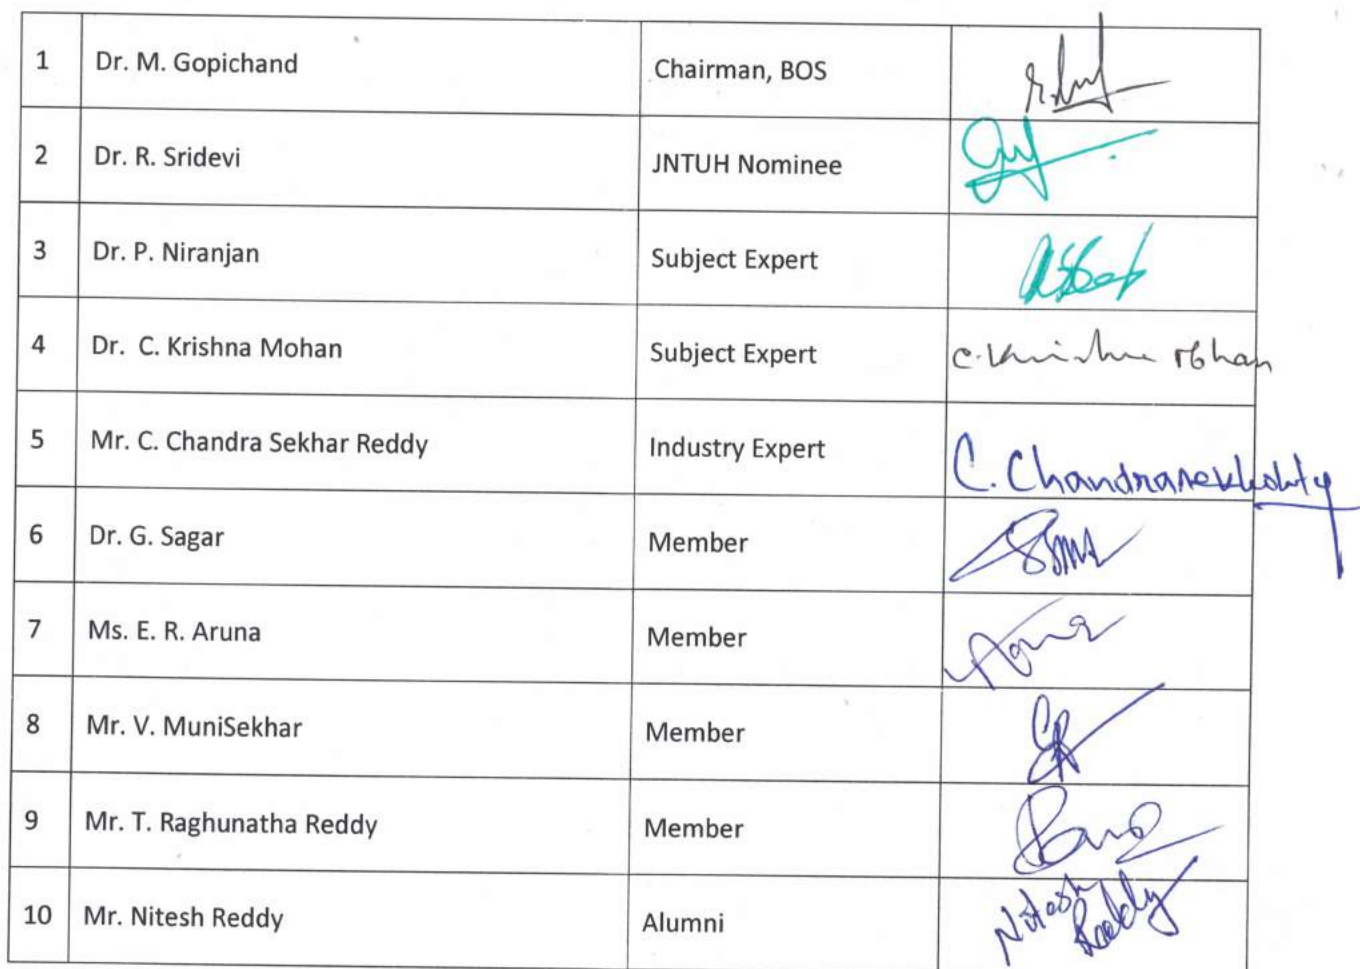 1 Dr. M. Gopichand Chairman, BOS
2 Dr. R. Sridevi JNTUH Nominee
3 Dr. P. Niranjan Subject Expert
4 Dr. C. Krishna Mohan Subject Expert C. Krishna Mohan
5 Mr. C. Chandra Sekhar Reddy Industry Expert C. Chandrasekhar
6 Dr. G. Sagar Member
7 Ms. E. R. Aruna Member
8 Mr. V. MuniSekhar Member
9 Mr. T. Raghunatha Reddy Member
10 Mr. Nitesh Reddy Alumni Nitesh Reddy